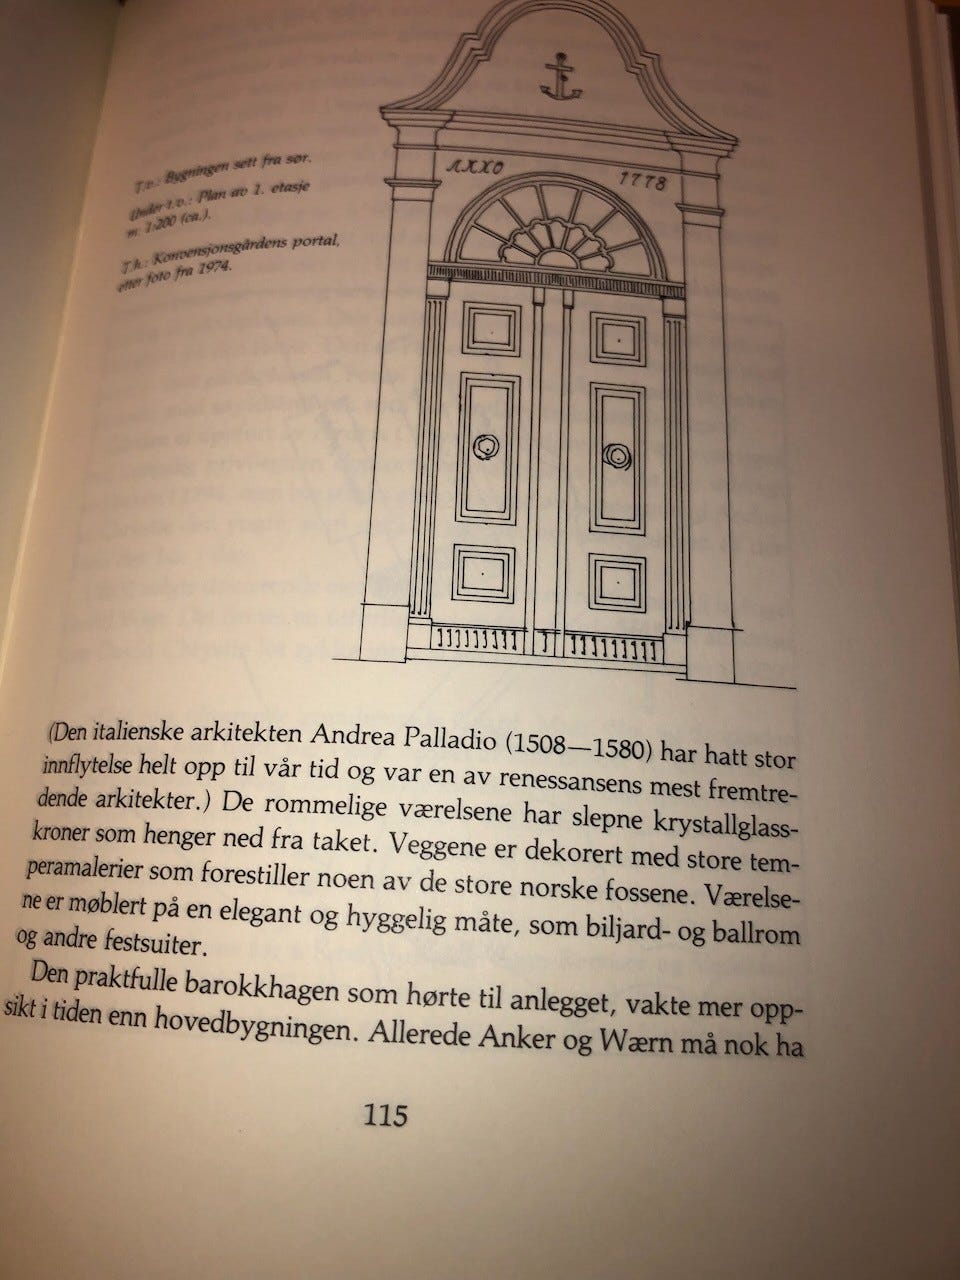 T.v.: Bygningen sett fra sør.
Under t.v.: Plan av 1. etasje
m. 1:200 (ca.).
T.h.: Konvensjonsgårdens portal,
etter foto fra 1974.
1778
(Den italienske arkitekten Andrea Palladio (1508—1580) har hatt stor
innflytelse helt opp til vår tid og var en av renessansens mest fremtre-
dende arkitekter.) De rommelige værelsene har slepne krystallglass-
kroner som henger ned fra taket. Veggene er dekorert med store tem-
peramalerier som forestiller noen av de store norske fossene. Værelse-
ne er møblert på en elegant og hyggelig måte, som biljard- og ballrom
og andre festsuiter.
Den praktfulle barokkhagen som hørte til anlegget, vakte mer opp-
sikt i tiden enn hovedbygningen. Allerede Anker og Wærn må nok ha
115